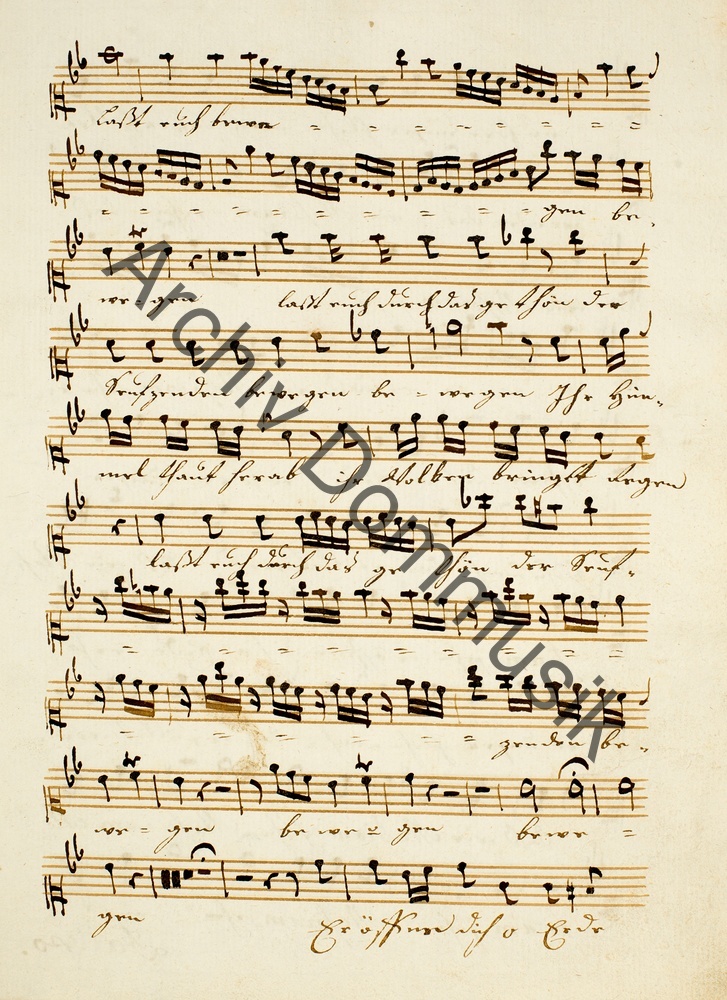 laßt euch bewe = = = = = = =
= = = = = = = = gen be-
we-gen laßt euch durch das gethön der
Seufzenden bewegen be = wegen Ihr Him-
mel thaut herab ihr Wolken bringet regen
laßt euch durch das gethön der Seuf-
= = = = = = = = =
= = = = = = zenden be-
we = gen bewe = gen bewe =
gen Eröffne dich o Erde
Archiv Dommusik